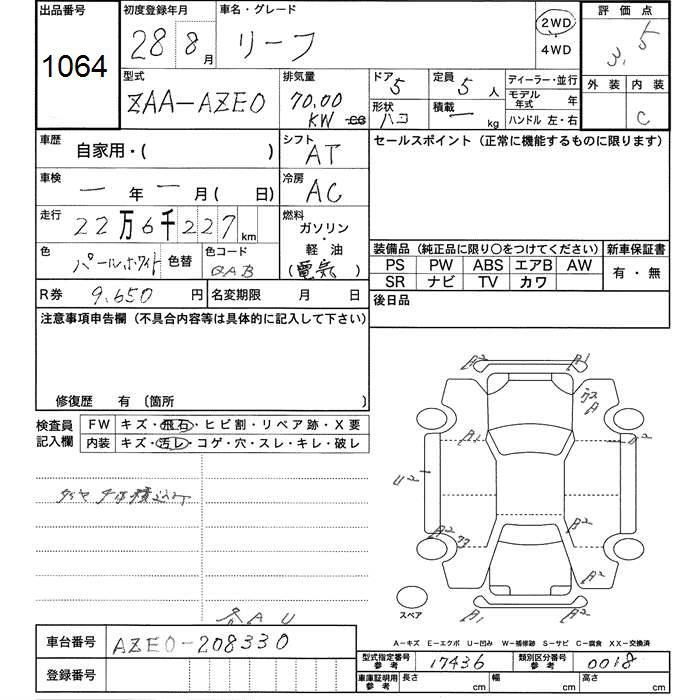 出品番号
1064
初度登録年月
28 8月
車名・グレード
リーフ
2WD
・
4WD
評価点
3.5
外装 内装
C
型式
ZAA-AZE0
排気量
70.00
KW cc
ドア 5
形状 ハコ
定員 5 人
積載 ー kg
ディーラー・並行
モデル年式 年
ハンドル 左・右
車歴
自家用・( )
シフト
AT
セールスポイント(正常に機能するものに限ります)
車検
ー 年 ー 月( 日)
冷房
AC
走行
22万6千227km
燃料
ガソリン
・
軽油
(電気)
色
パールホワイト
色替
色コード
QAB
装備品(純正品に限り○をつけてください)
PS PW ABS エアB AW
SR ナビ TV カワ
新車保証書
有・無
R券 9,650 円
名変期限 月 日
後日品
注意事項申告欄(不具合内容等は具体的に記入して下さい)
修復歴 有 〔箇所 〕
検査員
記入欄
FW キズ・飛石・ヒビ割・リペア跡・X要
内装 キズ・汚レ・コゲ・穴・スレ・キレ・破レ
A2 A1
A
A1 U2
U2
A2 B2
A2
A1 U2
スペア
A-キズ E-エクボ U-凹み W-補修跡 S-サビ C-腐食 XX-交換済
車台番号 AZE0-208330
登録番号
型式指定番号
参考
17436
類別区分番号
参考
0018
車庫証明用
参考
長さ cm 幅 cm 高さ cm